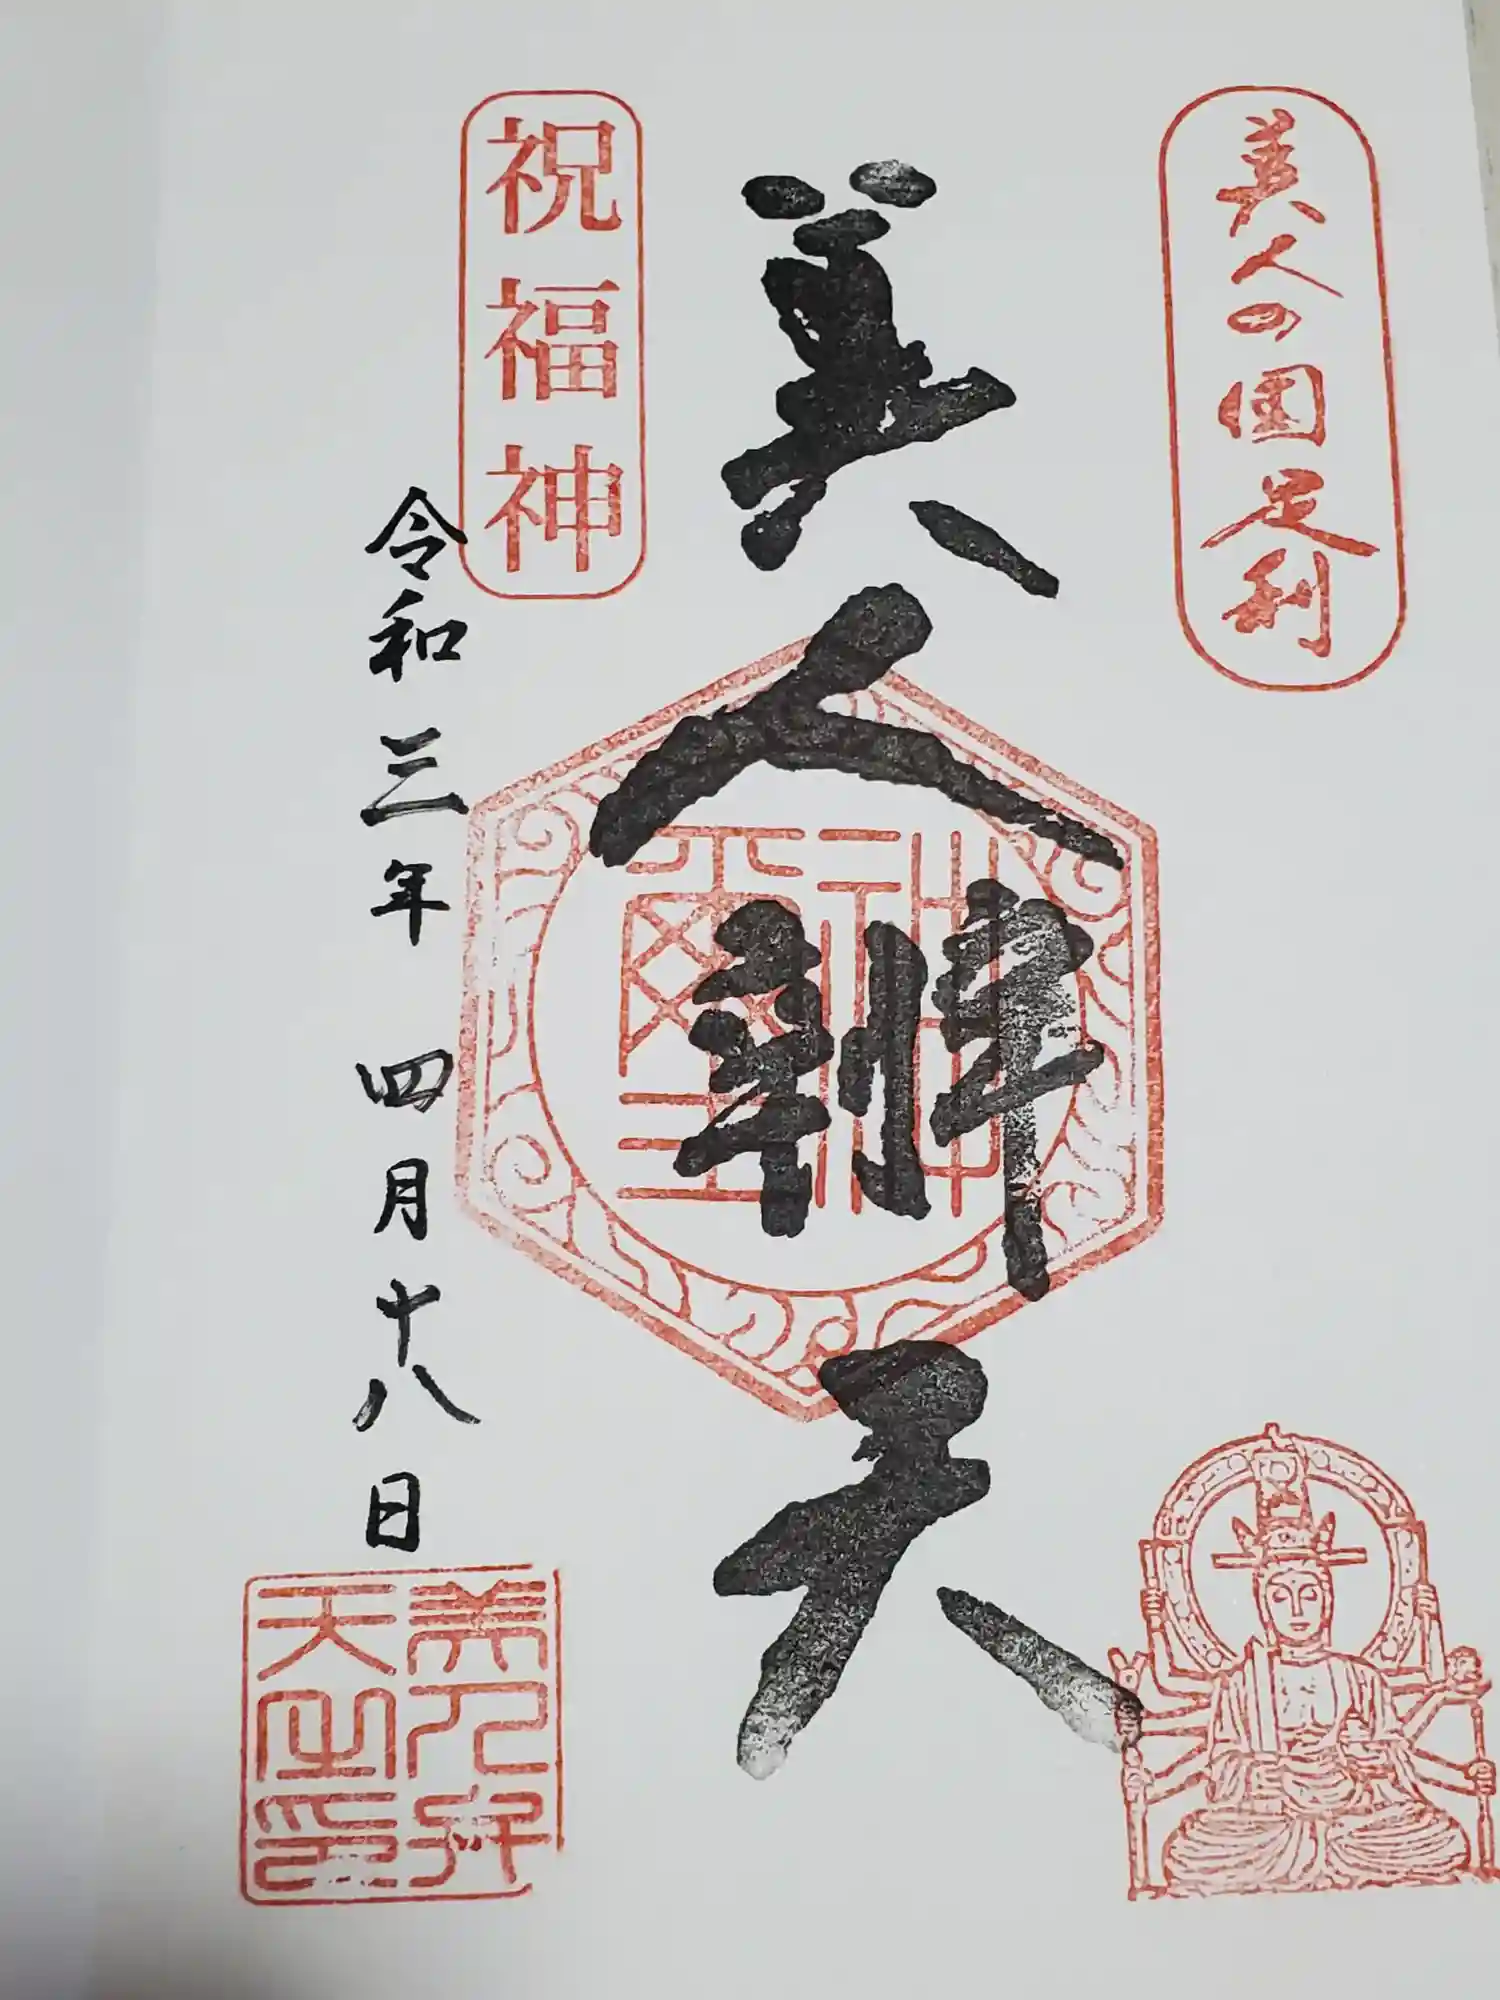 美人の國足利
美人辨天
祝福神
令和三年 四月十八日
神璽
美人弁
天之印